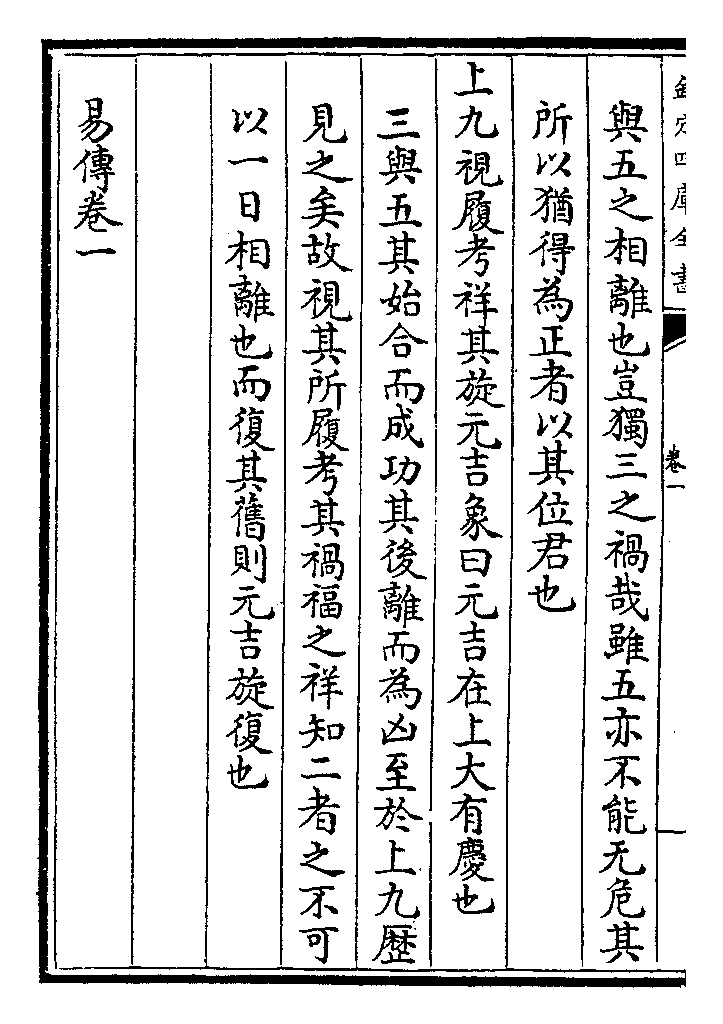 欽定四庫全書
卷一
與五之相離也豈獨三之禍哉雖五亦不能无危其
所以猶得為正者以其位君也
上九視履考祥其旋元吉象曰元吉在上大有慶也
三與五其始合而成功其後離而為凶至於上九歴
見之矣故視其所履考其禍福之祥知二者之不可
以一日相離也而復其舊則元吉旋復也
易傳卷一